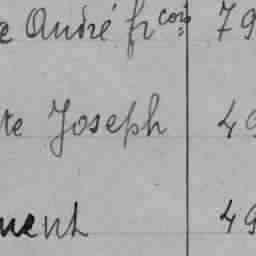 e André frçois 79
te Joseph 49
ment 49